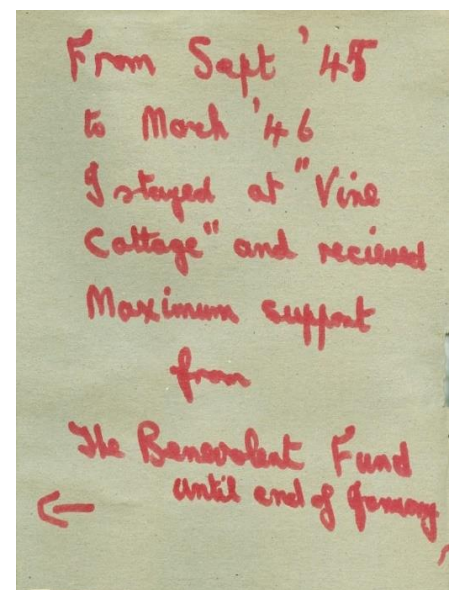 From Sept '45
to March '46
I stayed at "Vine
Cottage" and recieved
Maximum support
from
The Benevolent Fund
until end of January